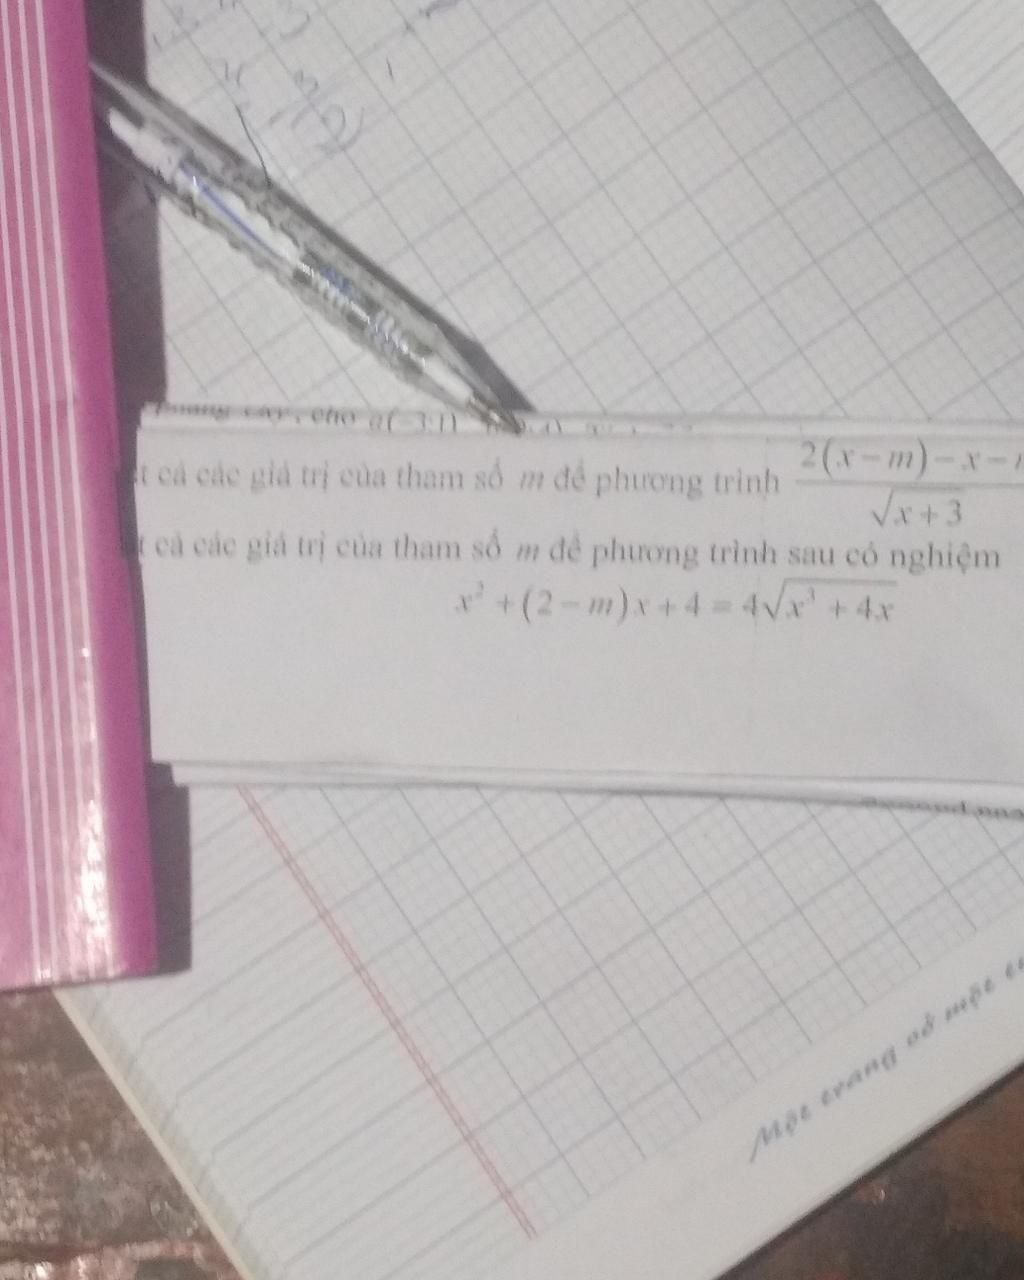 cho
t cả các giá trị của tham số m để phương trình 2(x − m) − x − / √x + 3
t cả các giá trị của tham số m để phương trình sau có nghiệm
x² + (2 − m)x + 4 = 4√x³ + 4x
Một trang vở một